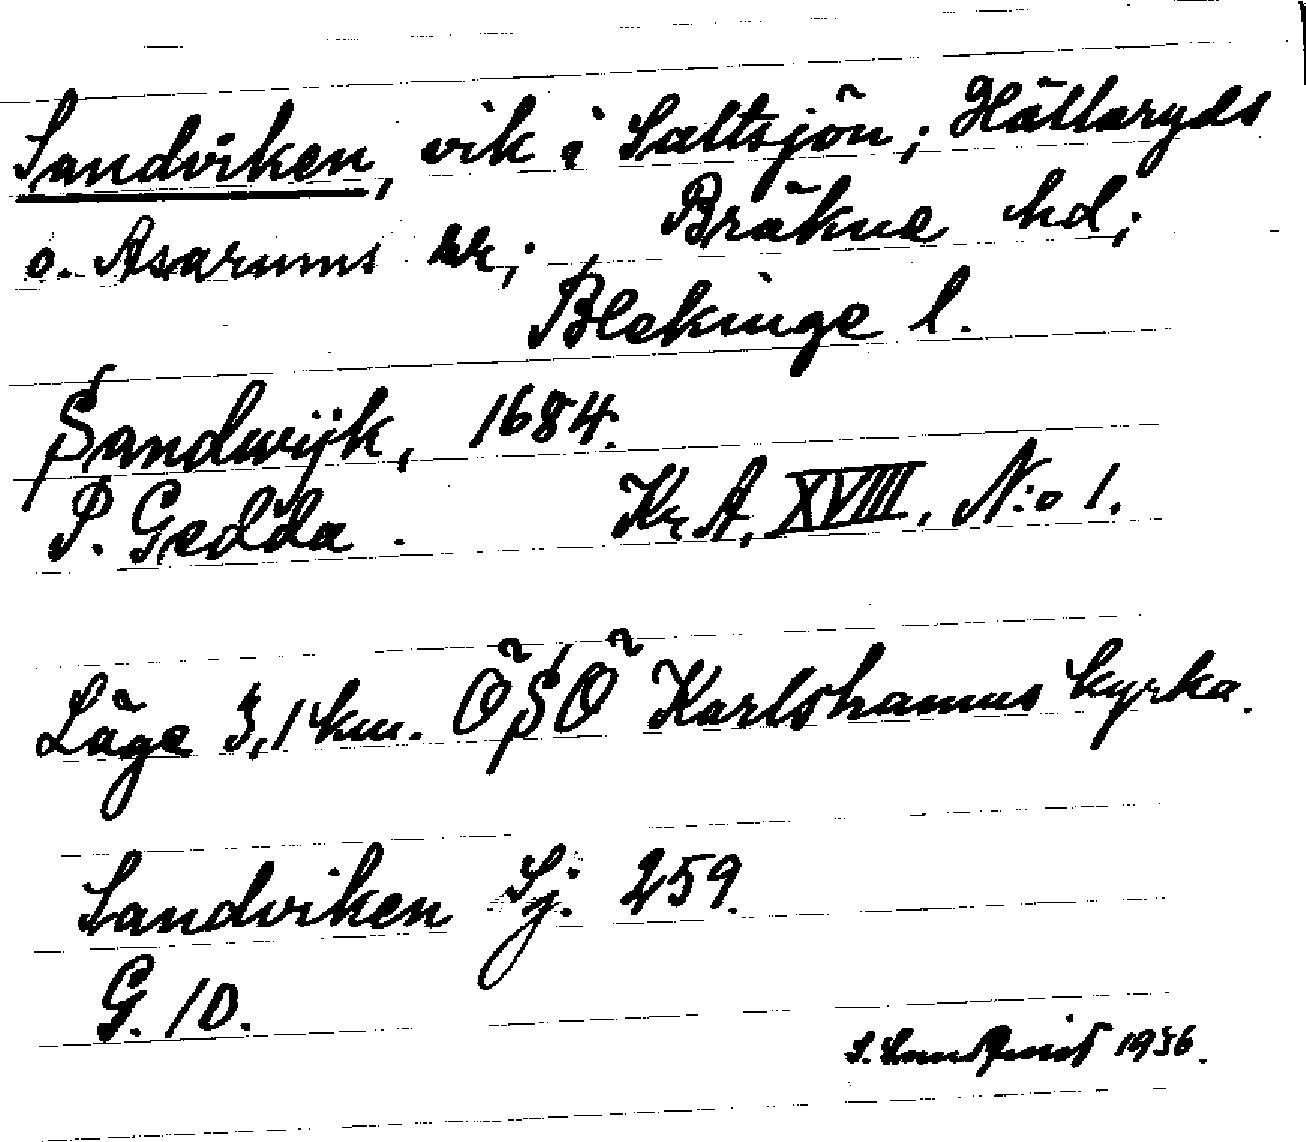 Sandviken, vik i Saltsjön; Hällaryds
o. Asarums sk; Bräkne hd;
Blekinge l.
Sandwijk, 1684.
P. Gedda. Kr A, XVIII, N:o 1.
Läge 3,1 km. ÖSÖ Karlshamns kyrka.
Sandviken Sj. 259.
G. 10.
S. 1936.